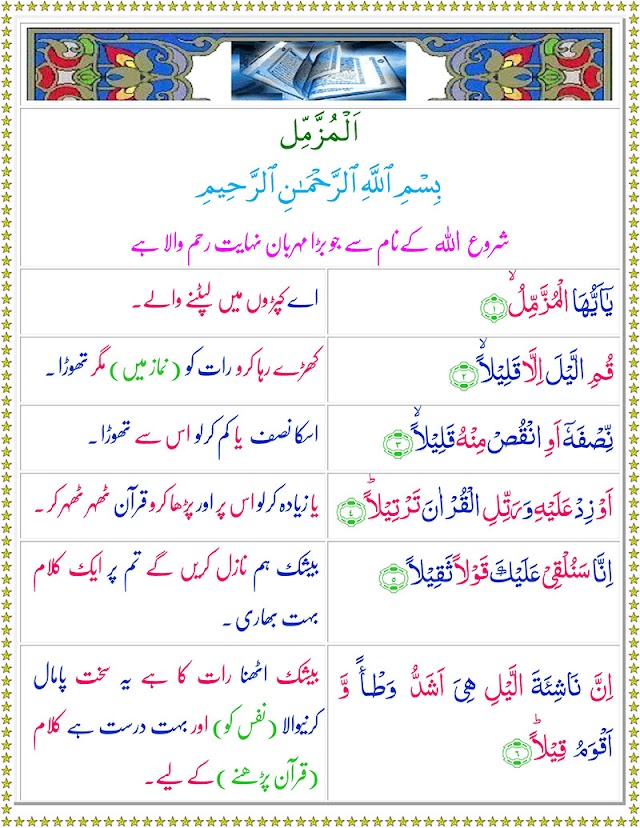 اَلْمُزَّمِّل
بِسْمِ ٱللَّهِ ٱلرَّحْمَـٰنِ ٱلرَّحِيمِ
شروع اللہ کے نام سے جو بڑا مہربان نہایت رحم والا ہے
يٰۤاَيُّهَا الْمُزَّمِّلُۙ ﴿۱﴾
اے کپڑوں میں لپٹنے والے۔
قُمِ الَّيْلَ اِلَّا قَلِيْلًاۙ ﴿۲﴾
کھڑے رہا کرو رات کو (نماز میں) مگر تھوڑا۔
نِّصْفَهٗۤ اَوِ انْقُصْ مِنْهُ قَلِيْلًاۙ ﴿۳﴾
اسکا نصف یا کم کرلو اس سے تھوڑا۔
اَوْ زِدْ عَلَيْهِ وَ رَتِّلِ الْقُرْاٰنَ تَرْتِيْلًاؕ ﴿۴﴾
یا زیادہ کرلو اس پر اور پڑھا کرو قرآن ٹھہر ٹھہر کر۔
اِنَّا سَنُلْقِىْ عَلَيْكَ قَوْلًا ثَقِيْلًا ﴿۵﴾
بیشک ہم نازل کریں گے تم پر ایک کلام
بہت بھاری۔
اِنَّ نَاشِئَةَ الَّيْلِ هِىَ اَشَدُّ وَطْاً وَّ
اَقْوَمُ قِيْلًاؕ ﴿۶﴾
بیشک اٹھنا رات کا ہے یہ سخت پامال
کرنیوالا (نفس کو) اور بہت درست ہے کلام
(قرآن پڑھنے) کے لیے۔